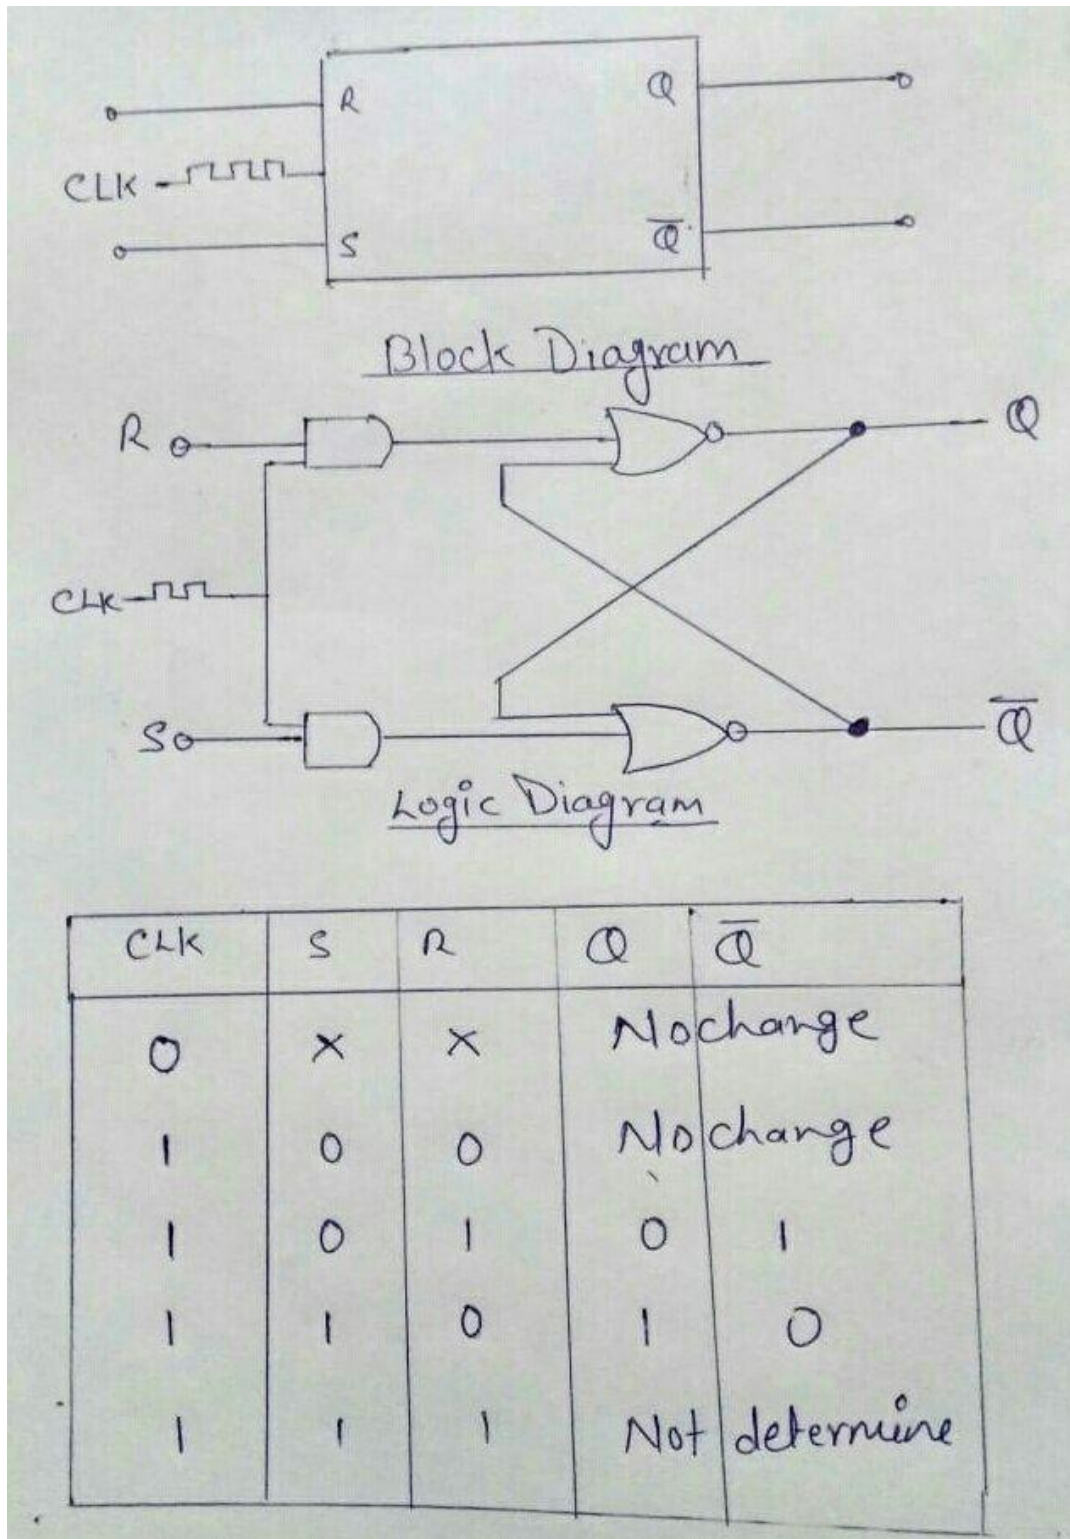 R Q
CLK
S Q̅
Block Diagram
R Q
CLK
S Q̅
Logic Diagram
CLK S R Q Q̅
0 × × No change
1 0 0 No change
1 0 1 0 1
1 1 0 1 0
1 1 1 Not determine